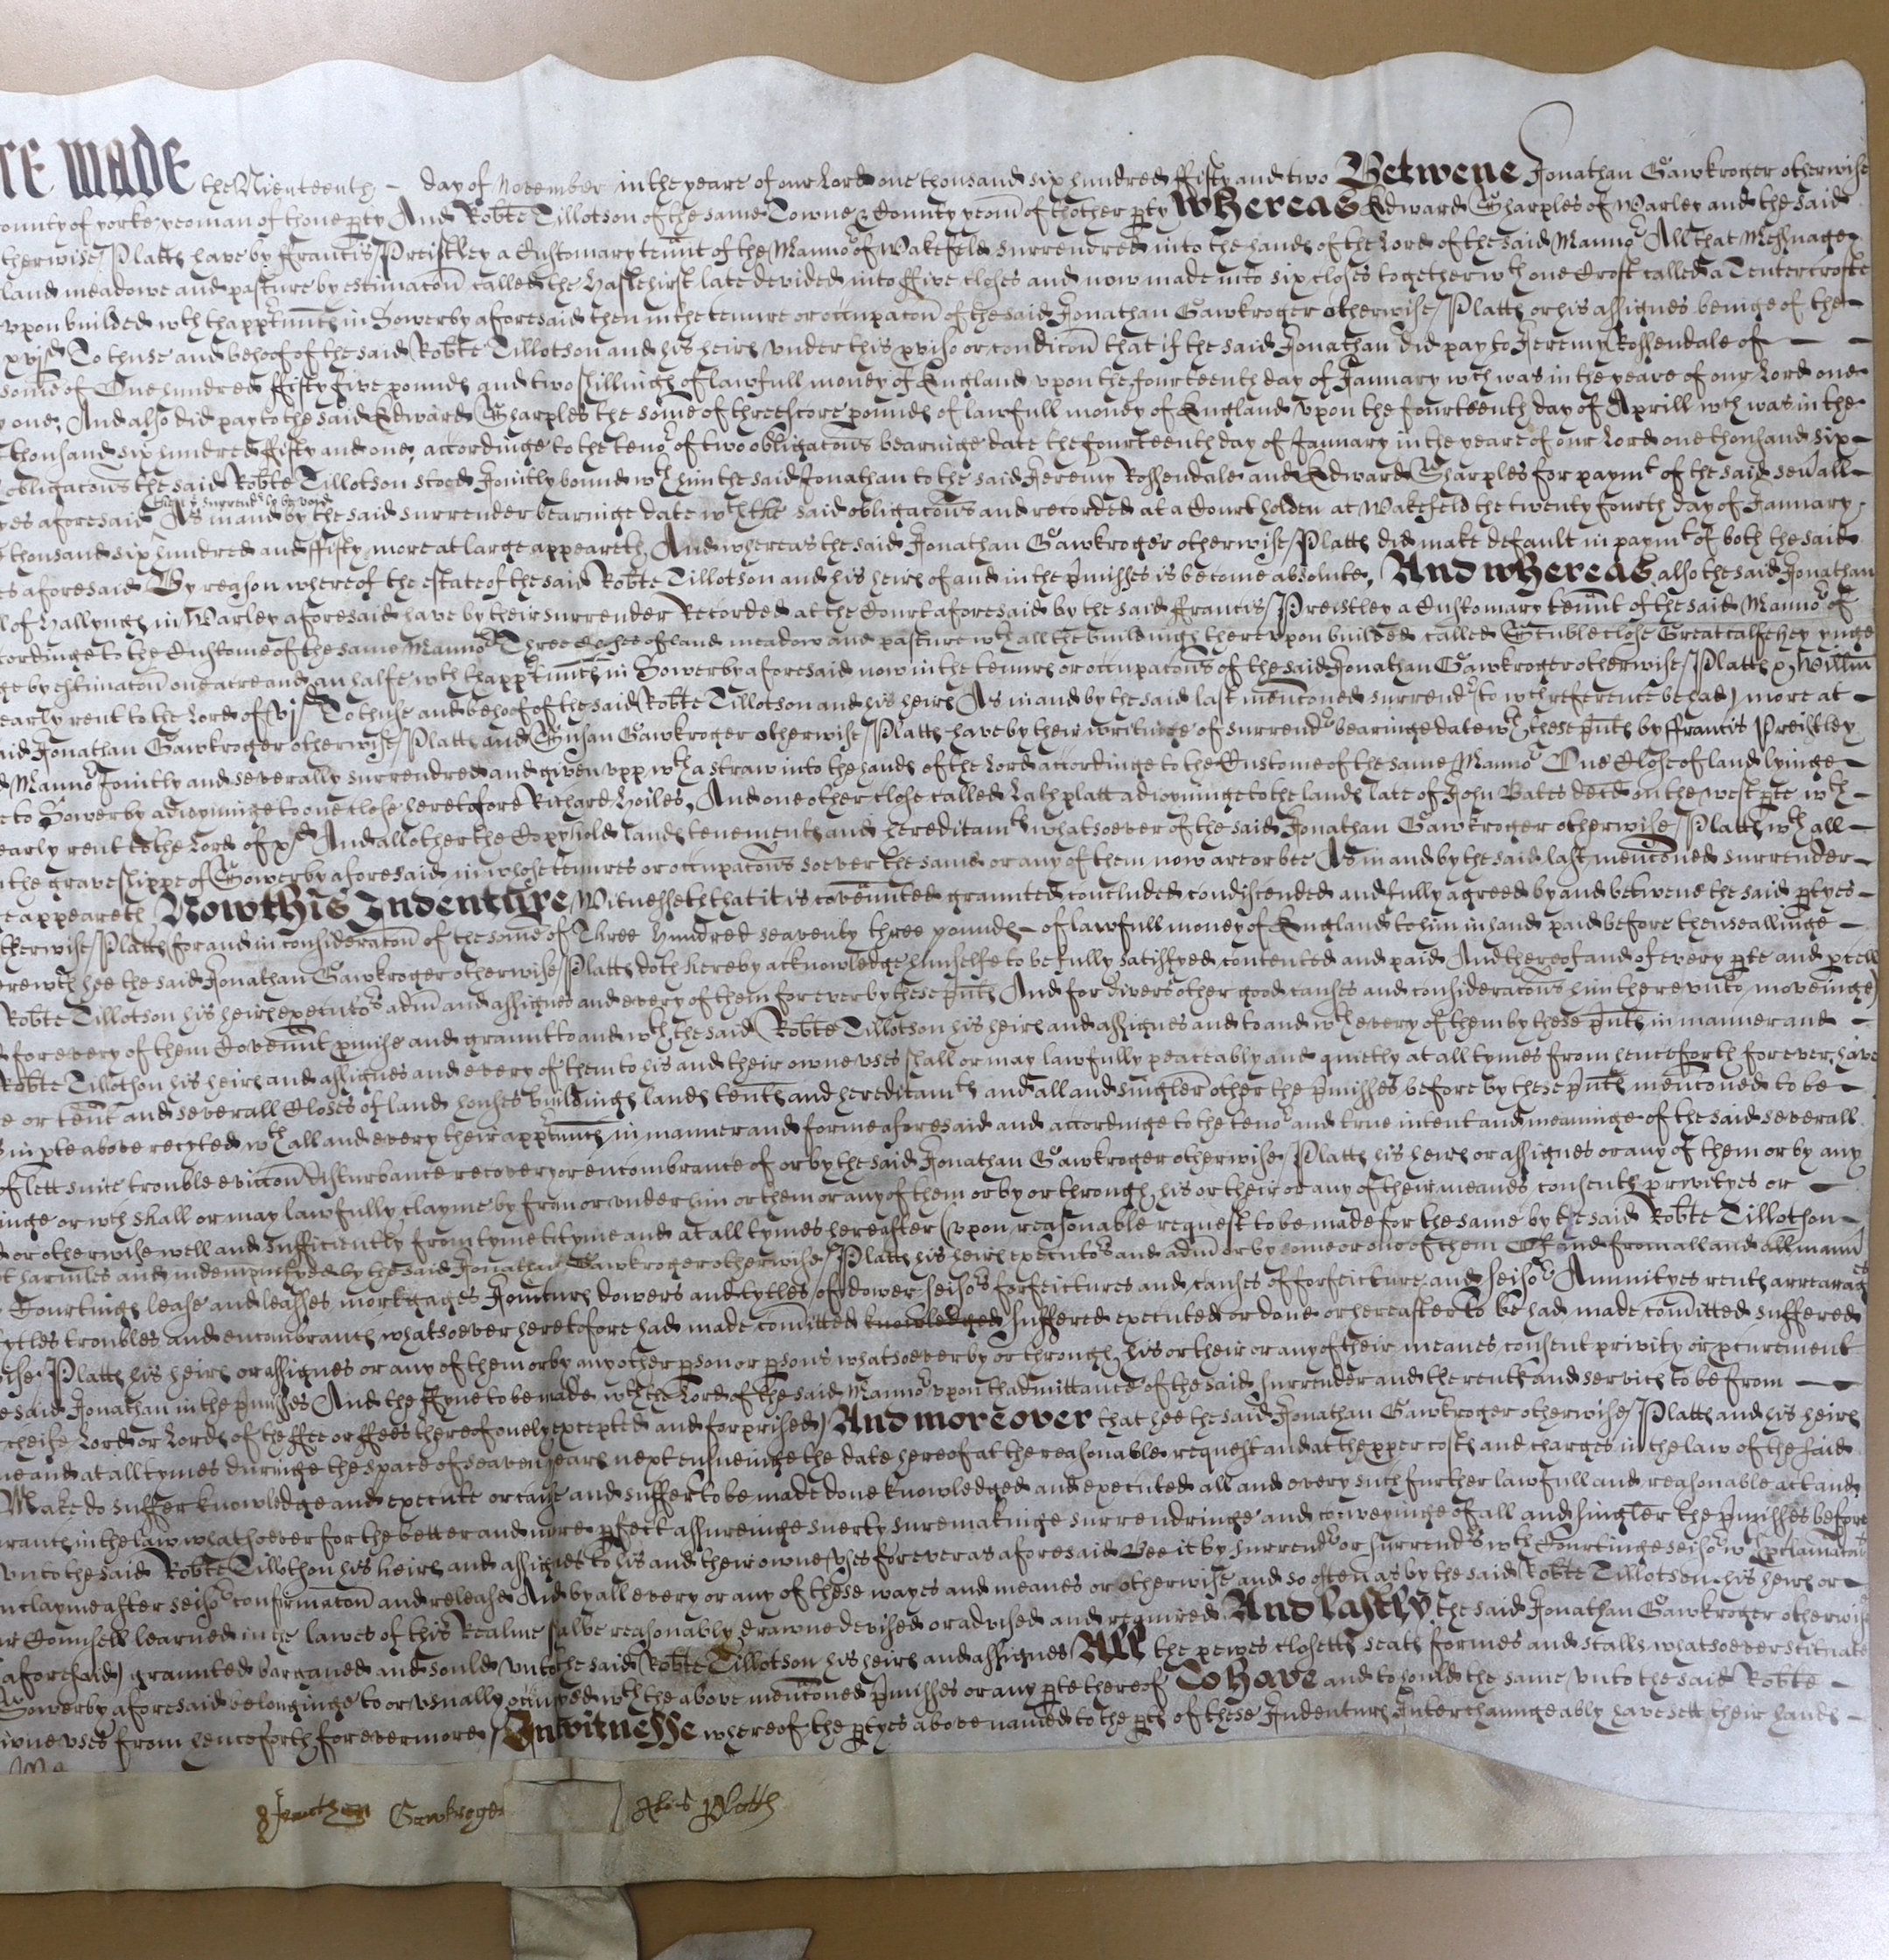 re made the Nienteenth - day of November in the yeare of our Lord one thousand six hundred ffifty and two Betwene Jonathan Gawkroger otherwise
ounty of yorke yeoman of thone pty And Robte Tillotson of the same Towne & County yeom of thother pty Whereas Edward Sharples of Warley and the said
therwise Platts have by ffrancis Preistley a Customary tennt of the Manno r of Wakefeld surrendred into the hands of the Lord of the said Manno r All that Messuage
land meadowe and pasture by estimacon called the Haslehirst late devided into ffive closes and now made into six closes together w th one Croft called a Tentercrofte
vpon builded w th thapp r tennces in Sowerby aforesaid then in the tenure or occupacon of the said Jonathan Gawkroger otherwise Platts or his assignes beinge of the
To thuse and behoof of the said Robte Tillotson and his heires vnder this pviso or condicon that if the said Jonathan did pay to Jeremy Rossendale of
some of One hundred ffifty five pounds and two shillings of lawfull money of England vpon the fourteenth day of January w ch was in the yeare of our Lord one
one, And also did pay to the said Edward Sharples the some of threescore pounds of lawfull money of England vpon the fourteenth day of Aprill w ch was in the
thousand six hundred ffifty and one, accordinge to the teno r of two obligacons bearinge date the fourteenth day of January in the yeare of our Lord one thousand six
obligacons the said Robte Tillotson stood Joyntly bound w th him the said Jonathan to the said Jeremy Rossendale and Edward Sharples for paym t of the said seuall
then y e surrend r to be void
es aforesaid As in and by the said surrender bearinge date w th the said obligacons and recorded at a Court holden at Wakefeld the twenty fourth day of January
thousand six hundred and ffifty more at large appeareth, And whereas the said Jonathan Gawkroger otherwise Platts did make default in paym t of both the said
es aforesaid By reason whereof the estate of the said Robte Tillotson and his heires of and in the pmisses is become absolute, And whereas also the said Jonathan
of Hallyngs in Warley aforesaid have by their surrender Recorded at the Court aforesaid by the said ffrancis Preistley a Customary tennt of the said Manno r of
cordinge to the Custome of the same Manno r Three Closes of land meadow and pasture w th all the buildings therevpon builded called Stubleclose Great calfehey ynge
ge by estimacon one acre and an halfe w th thapp r tennces in Sowerby aforesaid now in the tenures or occupacons of the said Jonathan Gawkroger otherwise Platts & Willm
early rent to the Lord of vj d To thuse and behoof of the said Robte Tillotson and his heires As in and by the said last menconed surrend r (to w ch reference be had) more at
aid Jonathan Gawkroger otherwise Platts and Susan Gawkroger otherwise Platts have by their writinge of surrend r bearinge date w th these pnts by ffrancis Preistley
Manno r Joyntly and severally surrendred and given vpp w th a straw into the hands of the Lord accordinge to the Custome of the same Manno r One Close of land lyinge
to Sowerby adioyninge to one close heretofore Richard Hoiles, And one other close called Lath platt adioyninge to the lands late of John Bates decd on the west pte w th
early rent to the Lord of x d And all other the Copyhold lands tenements and hereditam ts whatsoever of the said Jonathan Gawkroger otherwise Platts w th all
the graveshippe of Sowerby aforesaid in whose tenures or occupacons soever the same or any of them now are or bee As in and by the said last menconed surrender
e appeareth Now this Indenture Witnesseth that it is covennted graunted concluded condiscended and fully agreed by and betwene the said ptyes
therwise Platts for and in consideracon of the some of Three Hundred seaventy three pounds - of lawfull money of England to him in hand paid before thensealinge
rew th hee the said Jonathan Gawkroger otherwise Platts doth hereby acknowledge himselfe to be fully satisfyed contented and paid And thereof and of every pte and pcell
Robte Tillotson his heires executo rs adm and assignes and every of them for ever by these pnts And for divers other good causes and consideracons him therevnto moveinge
for every of them Covennt pmise and graunt to and w th the said Robte Tillotson his heires and assignes and to and w th every of them by these pnts in manner and
Robte Tillotson his heires and assignes and every of them to his and their owne vses shall or may lawfully peaceably and quietly at all tymes from henceforth for ever have
e or tent and severall Closes of land houses buildings lands tents and hereditam ts and all and singler other the pmisses before by these pnts menconed to be
in pte above recyted w th all and every their app r tennces in manner and forme aforesaid and accordinge to the teno r and true intent and meaninge of the said severall
of lett suite trouble eviccon disturbance recovery or encombrance of or by the said Jonathan Gawkroger otherwise Platts his heires or assignes or any of them or by any
inge or w ch shall or may lawfully clayme by from or vnder him or them or any of them or by or through his or their or any of their meanes consents privityes or
or otherwise well and sufficiently from tyme to tyme and at all tymes hereafter (vpon reasonable request to be made for the same by the said Robte Tillotson
harmles and indempnifyed by the said Jonathan Gawkroger otherwise Platts his heires executo rs and adm or by some or one of them Of and from all and all mann
Courtings lease and leasses mortgages Joynctures dowers and tytles of dower seiso rs forfeictures and causes of forfeicture and seiso rs Annuityes rents arrearages
ytles troubles and encombrances whatsoever heretofore had made comitted knowledged suffered executed or done or hereafter to be had made comitted suffered
wise Platts his heires or assignes or any of them or by any other pson or psons whatsoever by or through his or their or any of their meanes consent privity or pcurement
e said Jonathan in the pmisses And the ffyne to be made w th the Lord of the said Manno r vpon thadmittance of the said surrender and the rents and services to be from
cheife Lord or Lords of the ffee or ffees thereof onely excepted and forprised) And moreover that hee the said Jonathan Gawkroger otherwise Platts and his heires
me and at all tymes duringe the space of seaven years next ensueinge the date hereof at the reasonable request and at the pper costs and charges in the law of the said
Make do suffer knowledge and execute or cause and suffer to be made done knowledged and executed all and every such further lawfull and reasonable act and
rances in the law whatsoever for the better and more pfect assureinge suerty suremakinge surrendringe and conveyinge of all and singler the pmisses before
vnto the said Robte Tillotson his heires and assignes to his and their owne vses for ever as aforesaid Bee it by surrend r or surrend rs w th Courtinge seiso r w th pclamacons
clayme after seiso r confirmacon and release And by all every or any of these wayes and meanes or otherwise and so often as by the said Robte Tillotson his heires or
r Counsell learned in the lawes of this Realme shalbe reasonably drawne devised or advised and required And lastly the said Jonathan Gawkroger otherwise
aforesaid) graunted barganed and sould vnto the said Robte Tillotson his heires and assignes All the pewes closetts seats formes and stalls whatsoever scituate
Sowerby aforesaid belonginge to or vsually occupyed w th the above menconed pmisses or any pte thereof To have and to hould the same vnto the said Robte
owne vses from henceforth for evermore / In witnesse whereof the ptyes above named to the pts of these Indentures Interchaungeably have sett their hands
Jonathan Gawkroger Alis Platts